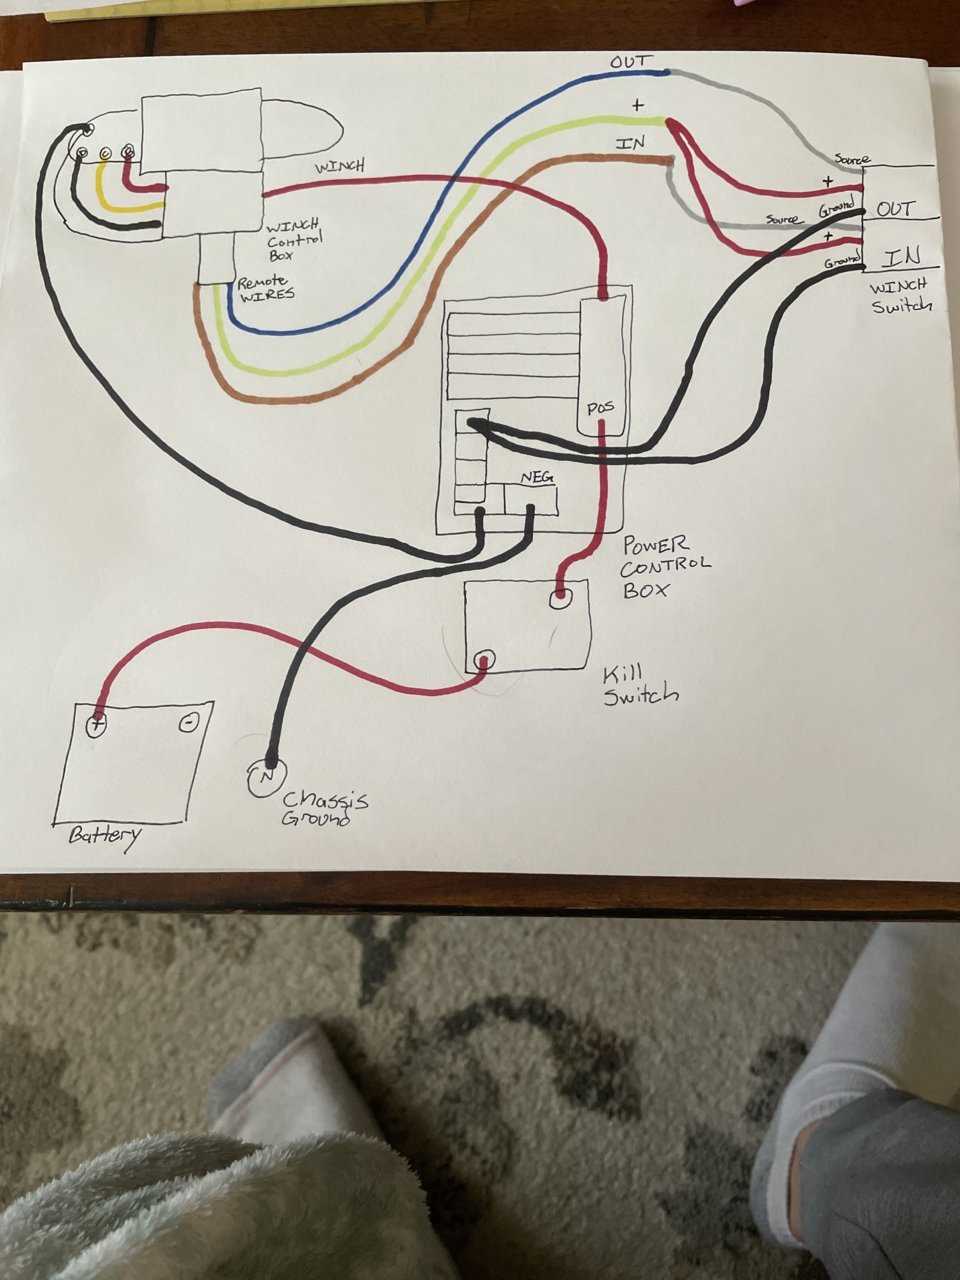 OUT
+
IN
WINCH
Source
+
Ground
OUT
Source
+
Ground
IN
WINCH
Switch
WINCH
Control
Box
Remote
WIRES
POS
NEG
POWER
CONTROL
BOX
Kill
Switch
+
-
Battery
N
Chassis
Ground